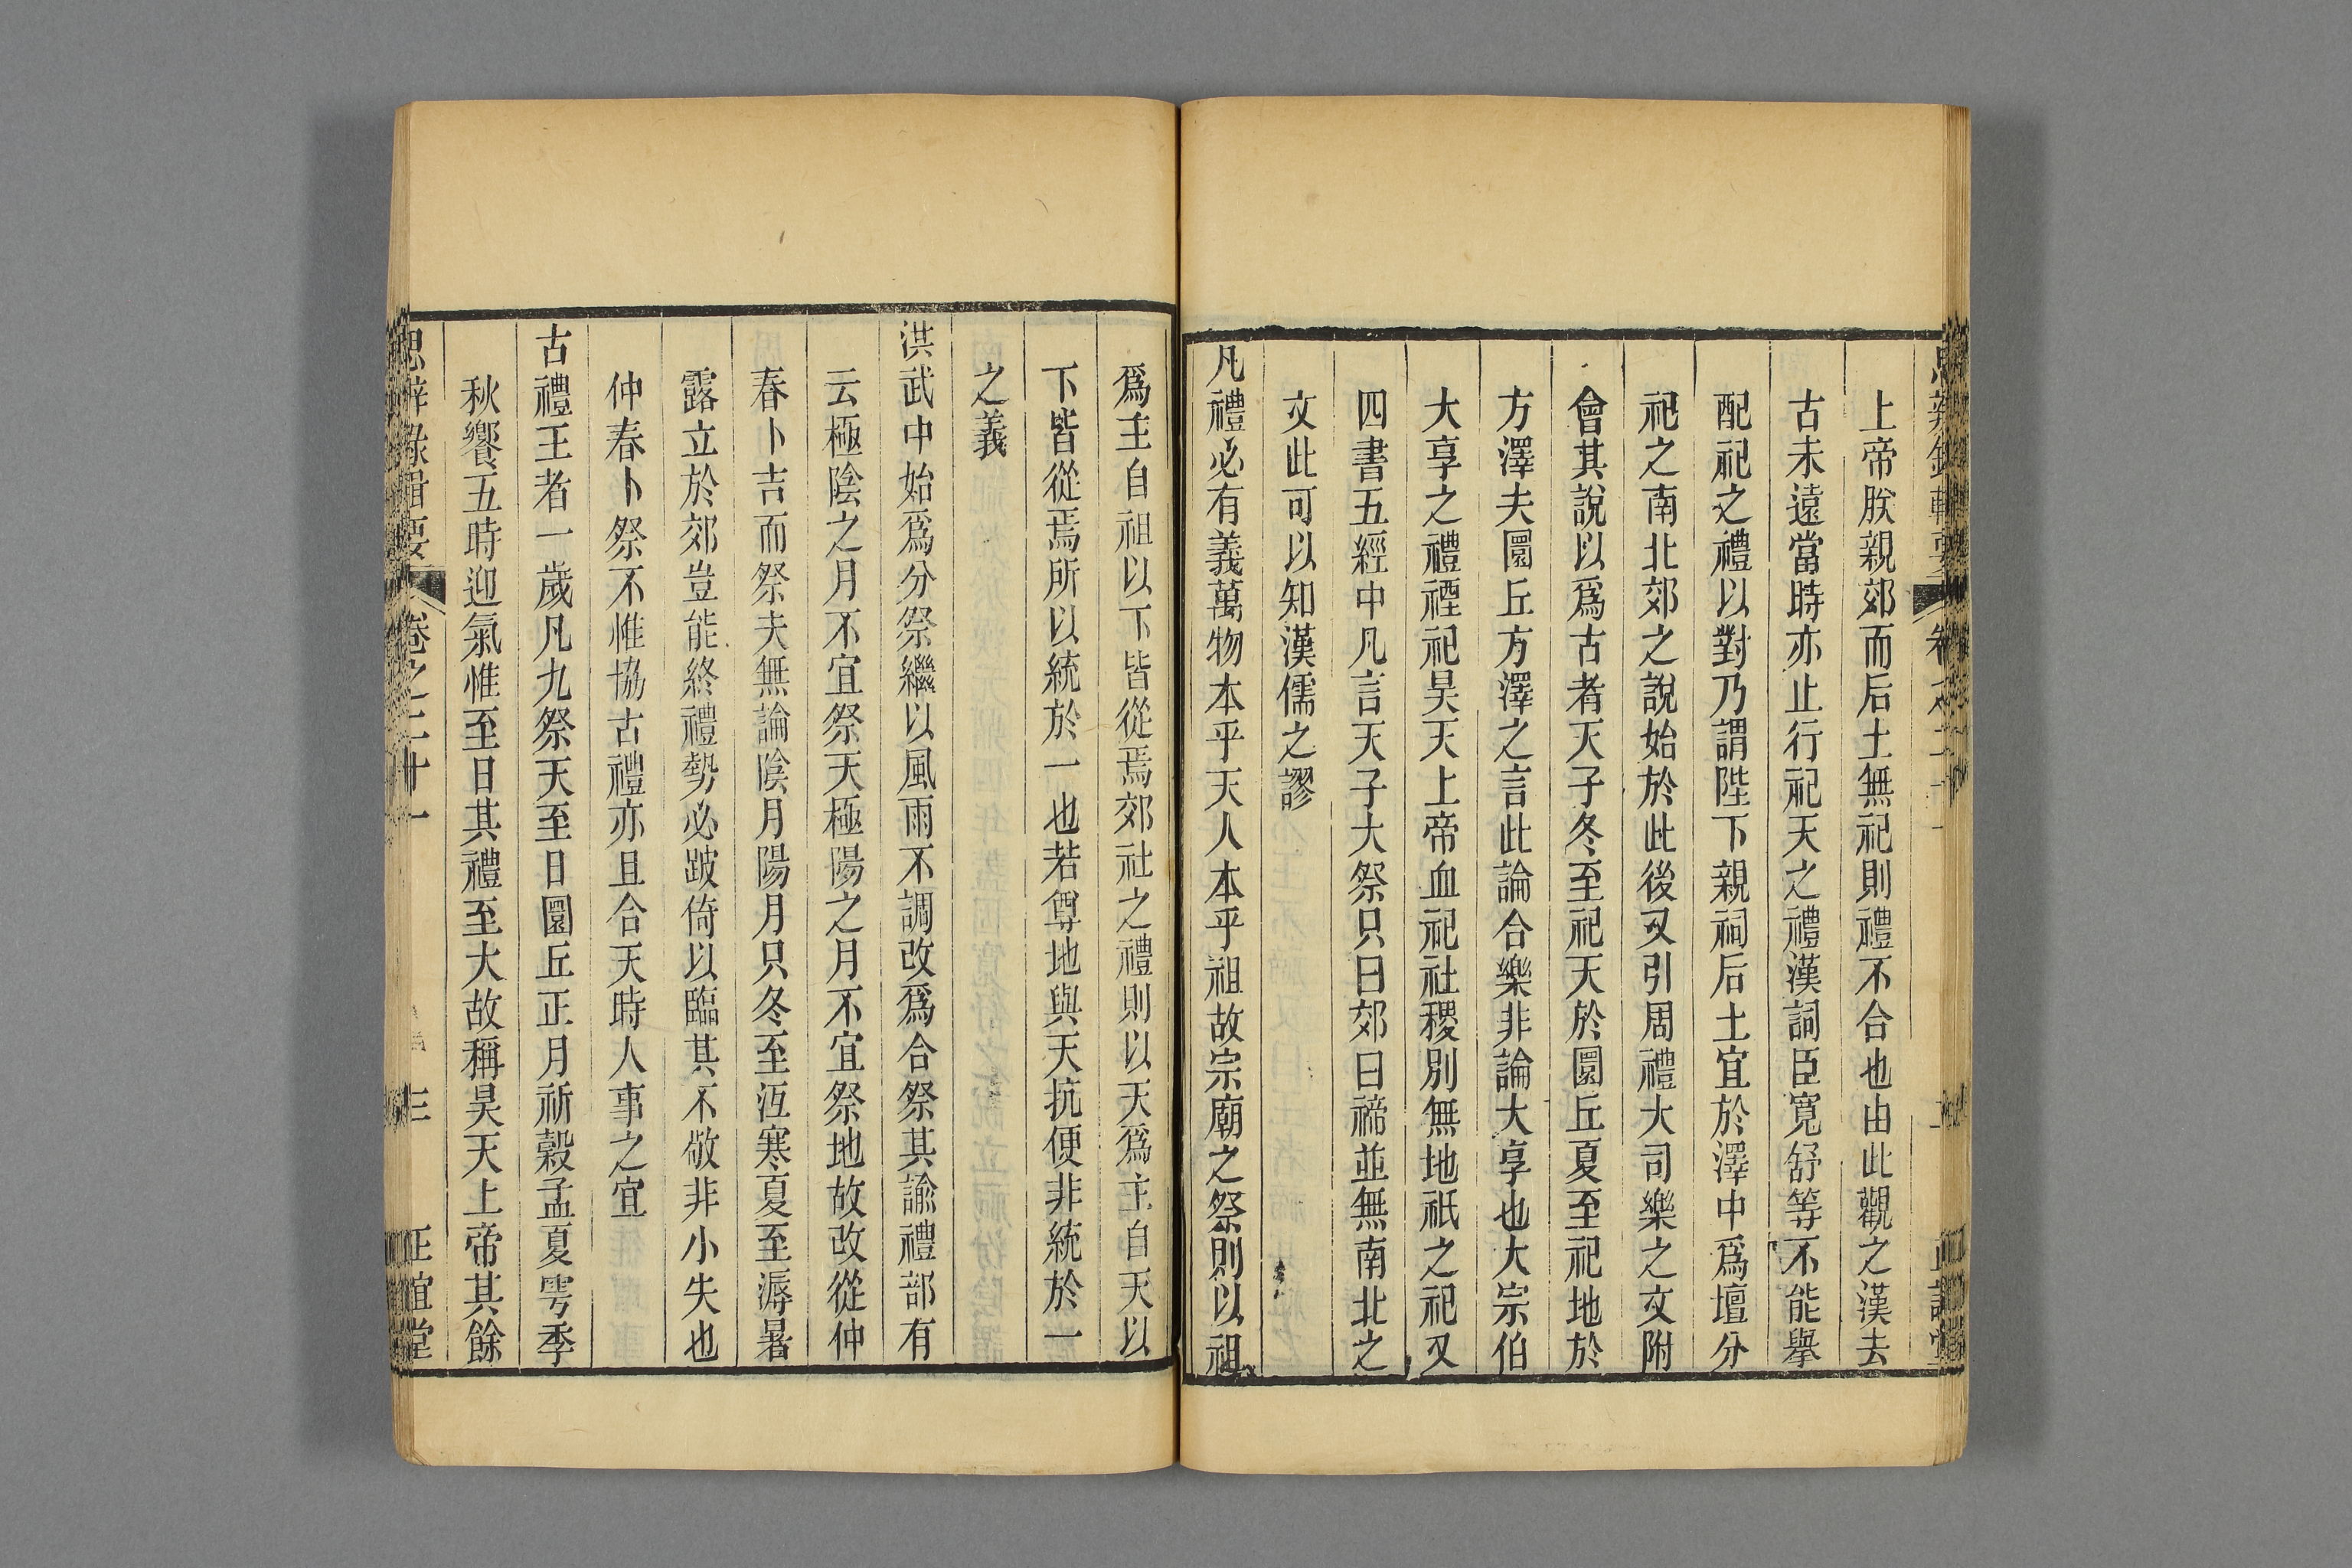 上帝朕親郊而后土無祀則禮不合也由此觀之漢去
古未遠當時亦止行祀天之禮漢詞臣寛舒等不能舉
配祀之禮以對乃謂陛下親祠后土宜於澤中爲壇分
祀之南北郊之說始於此後又引周禮大司樂之文附
會其說以爲古者天子冬至祀天於圜丘夏至祀地於
方澤夫圜丘方澤之言此論合樂非論大享也大宗伯
大享之禮禋祀昊天上帝血祀社稷別無地祇之祀又
四書五經中凡言天子大祭只曰郊曰禘並無南北之
文此可以知漢儒之謬
凡禮必有義萬物本乎天人本乎祖故宗廟之祭則以祖
爲主自祖以下皆從焉郊社之禮則以天爲主自天以
下皆從焉所以統於一也若尊地與天抗便非統於一
之義
洪武中始爲分祭繼以風雨不調改爲合祭其諭禮部有
云極陰之月不宜祭天極陽之月不宜祭地故改從仲
春卜吉而祭夫無論陰月陽月只冬至沍寒夏至溽暑
露立於郊豈能終禮勢必跛倚以臨其不敬非小失也
仲春卜祭不惟協古禮亦且合天時人事之宜
古禮王者一歲凡九祭天至日圜丘正月祈穀孟夏雩季
秋饗五時迎氣惟至日其禮至大故稱昊天上帝其餘
思辨錄輯要 卷之二十一 三 正誼堂